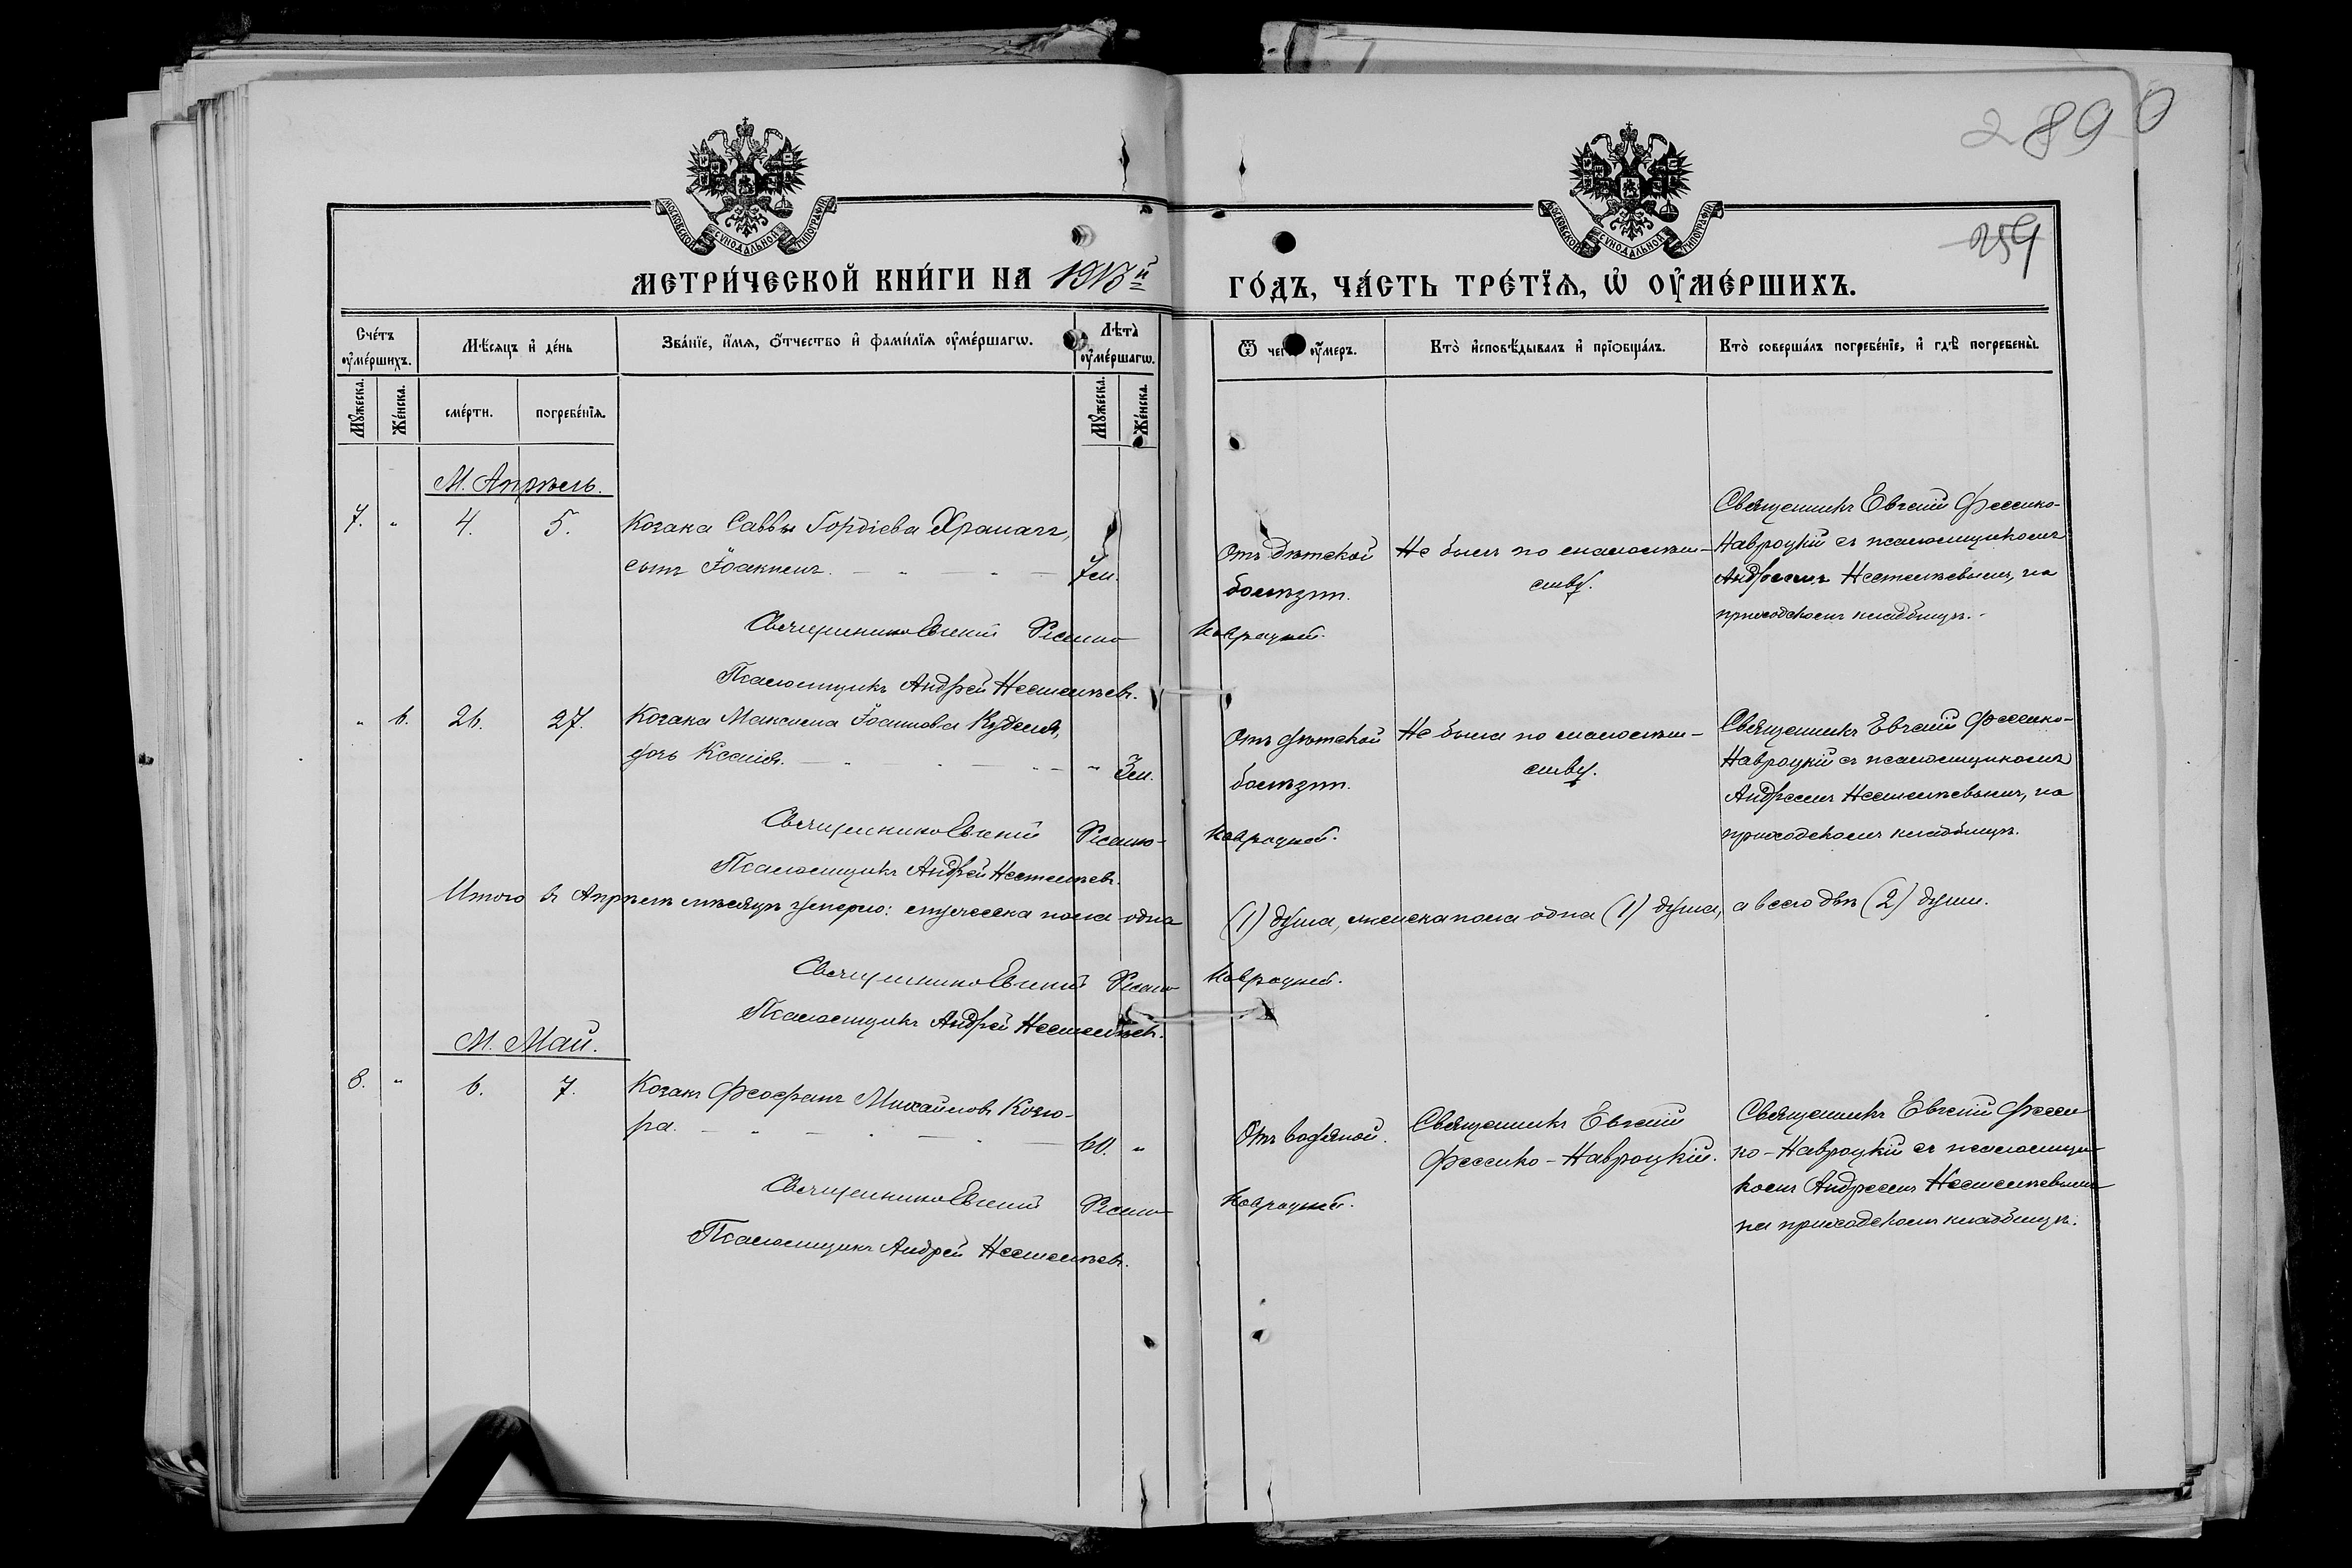 2890
259
МОСКОВСКОЙ СѴНОДАЛЬНОЙ ТИПОГРАФІИ
МОСКОВСКОЙ СѴНОДАЛЬНОЙ ТИПОГРАФІИ
МЕТРИ́ЧЕСКОЙ КНИ́ГИ НА 1913й ГО́ДЪ, ЧА́СТЬ ТРЕ́ТЇѦ, Ѡ҆ ОУ҆МЕ́РШИХЪ.
Сче́тъ оу҆ме́ршихъ.
Мѣ́сяцъ и҆ де́нь
Зва́нїе, и҆́мѧ, ѻ҆́тчество и҆ фами́лїѧ оу҆ме́ршагѡ.
Лѣта̀ оу҆ме́ршагѡ.
Ѿ чего̀ оу҆́меръ.
Кто̀ и҆сповѣ́дывалъ и҆ прїѻбща́лъ.
Кто̀ соверша́лъ погребе́нїе, и҆ гдѣ̀ погребены̀.
Мꙋ́жеска.
Же́нска.
сме́рти.
погребе́нїѧ.
Мꙋ́жеска.
Же́нска.
М. Апрѣль.
7. " 4. 5. Козака Саввы Гордіева Храпачъ,
сынъ Іоакимъ. 7м.
Отъ дѣтской
болѣзни.
Не былъ по малолѣт-
ству.
Священникъ Евгеній Фесенко-
Навроцкій съ псаломщикомъ
Андреемъ Нестелѣевымъ, на
приходскомъ кладбищѣ.
Священникъ Евгеній Фесенко Навроцкій.
Псаломщикъ Андрей Нестелѣевъ.
" 6. 26. 27. Козака Максима Іоаннова Куделя,
дочь Ксенія. " 3м.
Отъ дѣтской
болѣзни.
Не была по малолѣт-
ству.
Священникъ Евгеній Фесенко-
Навроцкій съ псаломщикомъ
Андреемъ Нестелѣевымъ, на
приходскомъ кладбищѣ.
Священникъ Евгеній Фесенко- Навроцкій.
Псаломщикъ Андрей Нестелѣевъ.
Итого въ Апрѣлѣ мѣсяцѣ умерло: мужеска пола одна (1) душа, женска пола одна (1) душа, а всего двѣ (2) души.
Священникъ Евгеній Фесенко Навроцкій.
Псаломщикъ Андрей Нестелѣевъ.
М. Май.
8. " 6. 7. Козакъ Феофанъ Михайловъ Козю-
ра. 60. "
Отъ водяной.
Священникъ Евгеній
Фесенко-Навроцкій.
Священникъ Евгеній Фесен
ко-Навроцкій съ псаломщи-
комъ Андреемъ Нестелѣевымъ
на приходскомъ кладбищѣ.
Священникъ Евгеній Фесенко Навроцкій.
Псаломщикъ Андрей Нестелѣевъ.